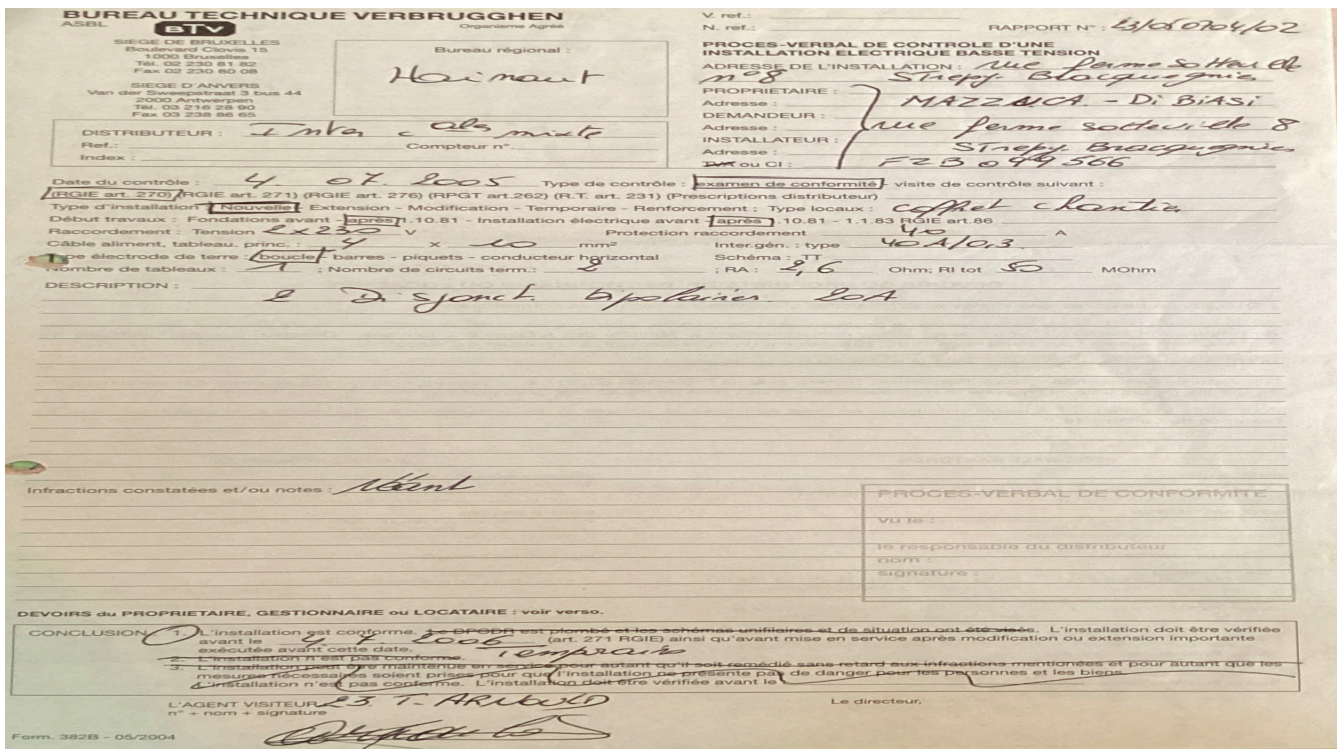 BUREAU TECHNIQUE VERBRUGGHEN
ASBL
Organisme Agréé
BTV
SIEGE DE BRUXELLES
Boulevard Clovis 15
1000 Bruxelles
Tél. 02 230 81 82
Fax 02 230 80 08
SIEGE D'ANVERS
Van der Sweepstraat 3 bus 44
2000 Antwerpen
Tél. 03 216 28 90
Fax 03 238 86 65
Bureau régional :
Hainaut
V. ref.:
N. ref.: RAPPORT N° : 23/050704/02
PROCES-VERBAL DE CONTROLE D'UNE
INSTALLATION ELECTRIQUE BASSE TENSION
ADRESSE DE L'INSTALLATION : rue ferme
n°8 Strepy Bracquegnies
PROPRIETAIRE :
Adresse : MAZZUCA - Di BiASi
DEMANDEUR :
Adresse : rue ferme sotteville 8
INSTALLATEUR : Strepy Bracquegnies
Adresse :
TVA ou CI : FZB 049 566
DISTRIBUTEUR : mixte
Ref.: Compteur n°
Index :
Date du contrôle : 4 07. 2005 Type de contrôle : examen de conformité - visite de contrôle suivant :
(RGIE art. 270) (RGIE art. 271) (RGIE art. 276) (RPGT art.262) (R.T. art. 231) (Prescriptions distributeur)
Type d'installation : Nouvelle - Extension - Modification - Temporaire - Renforcement : Type locaux : coffret chantier
Début travaux : Fondations avant - après 1.10.81 - Installation électrique avant - après 1.10.81 - 1.1.83 RGIE art.86
Raccordement : Tension 2x230 V Protection raccordement 40 A
Câble aliment, tableau. princ. : 4 x 10 mm² Inter.gén. : type 40A/0,3
Type électrode de terre : boucle - barres - piquets - conducteur horizontal Schéma : TT
Nombre de tableaux : 1 ; Nombre de circuits term.: 2 ; RA : 2,6 Ohm; RI tot 50 MOhm
DESCRIPTION :
2 Disjonct. bipolaires 20A
Infractions constatées et/ou notes : Néant
PROCES-VERBAL DE CONFORMITE
Vu le :
le responsable du distributeur
nom :
signature :
DEVOIRS du PROPRIETAIRE, GESTIONNAIRE ou LOCATAIRE : voir verso.
CONCLUSION 1. L'installation est conforme. Le DPCDR est plombé et les schémas unifilaires et de situation ont été visés. L'installation doit être vérifiée
avant le 4 7. 2006 (art. 271 RGIE) ainsi qu'avant mise en service après modification ou extension importante
exécutée avant cette date. Temporaire
2. L'installation n'est pas conforme.
3. L'installation peut être maintenue en service pour autant qu'il soit remédié sans retard aux infractions mentionnées et pour autant que les
mesures nécessaires soient prises pour que l'installation ne présente pas de danger pour les personnes et les biens.
L'installation n'est pas conforme. L'installation doit être vérifiée avant le
L'AGENT VISITEUR 23 T. ARNOULD Le directeur,
n° + nom + signature
Form. 382B - 05/2004